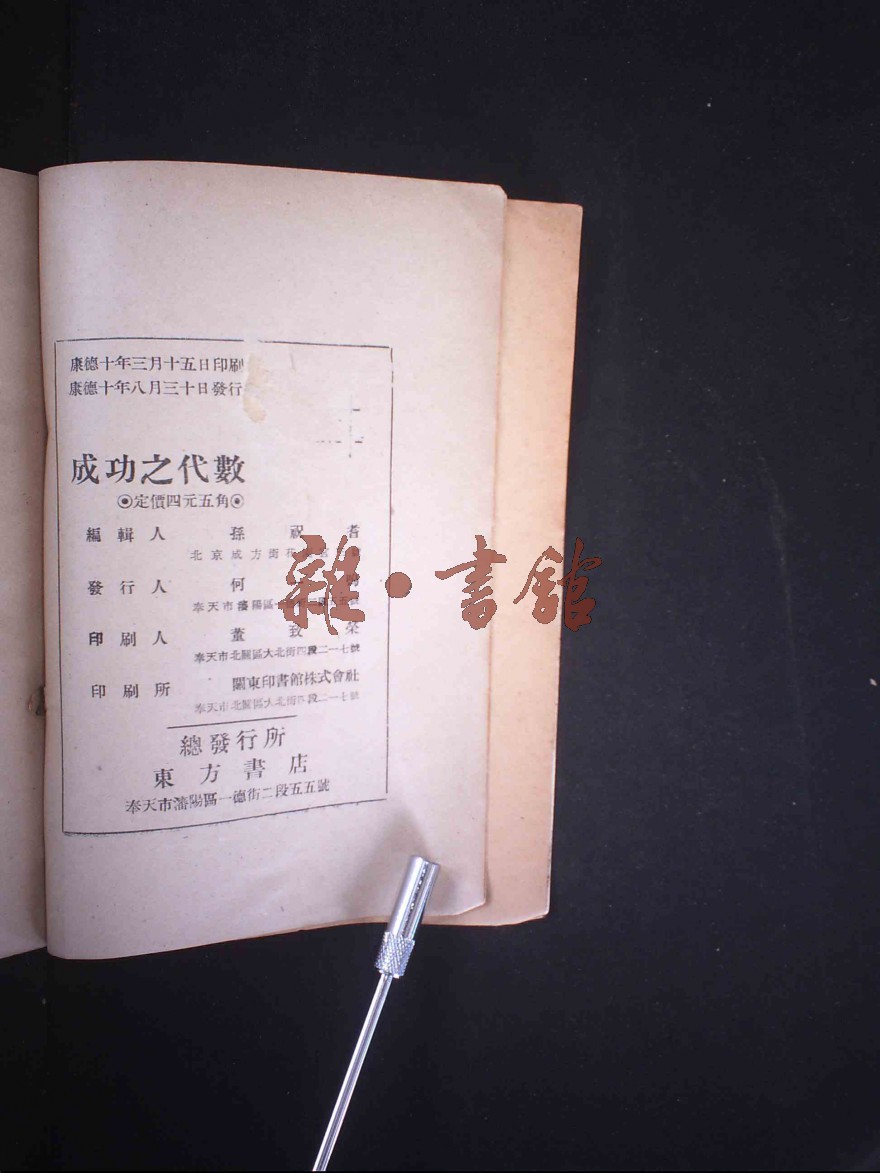 康德十年三月十五日印刷
康德十年八月三十日發行
成功之代數
◉定價四元五角◉
編輯人 孫祝耆
北京咸方街
發行人 何
奉天市瀋陽區一德街二段五五號
印刷人 董致榮
奉天市北關區大北街四段二一七號
印刷所 關東印書館株式會社
奉天市北關區大北街四段二一七號
總發行所
東方書店
奉天市瀋陽區一德街二段五五號
雜·書館